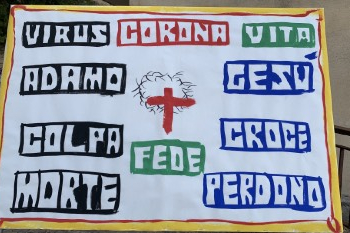 VIRUS CORONA VITA
ADAMO GESÙ
COLPA CROCE
FEDE
MORTE PERDONO